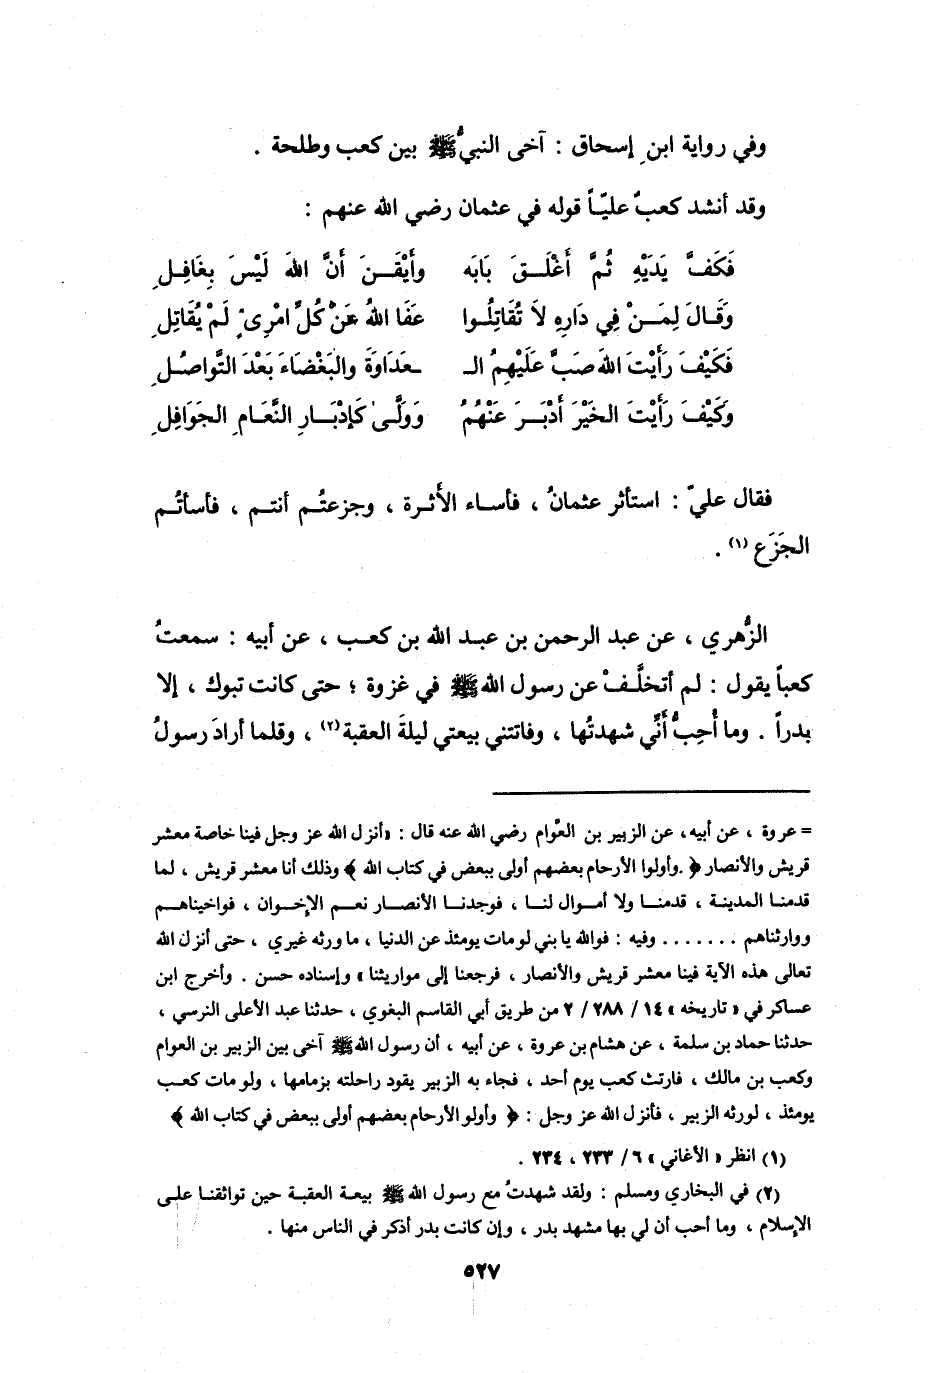 وفي رواية ابنِ إسحاق : آخى النبيُّ ﷺ بين كعب وطلحة .
وقد أنشد كعبٌ عليّاً قوله في عثمان رضي الله عنهم :
فَكَفَّ يَدَيْهِ ثُمَّ أَغْلَـقَ بَابَه وأَيْقَـنَ أَنَّ اللهَ لَيْسَ بِغَافِـلِ
وَقَـالَ لِمَـنْ فِي دَارِهِ لاَ تُقَاتِلُـوا عَفَا اللهُ عَنْ كُلِّ امْرِىءٍ لَمْ يُقَاتِلِ
فَكَيْفَ رَأَيْتَ اللهَ صَبَّ عَلَيْهِمُ الـ ـعَدَاوَةَ والبَغْضَاءَ بَعْدَ التَّواصُلِ
وَكَيْفَ رَأَيْتَ الخَيْرَ أَدْبَـرَ عَنْهُمُ وَوَلَّـى كَإِدْبَـارِ النَّعَامِ الجَوَافِلِ
فقال عليّ : استأثر عثمانُ ، فأساء الأَثـرة ، وجزعتُـم أنتـم ، فأسأتُـم
الجَزَع (١) .
الزُّهري ، عن عبد الرحمن بن عبد الله بن كعب ، عن أبيه : سمعتُ
كعباً يقول : لم أتخلَّفْ عن رسول الله ﷺ في غزوة ؛ حتى كانت تبوك ، إلا
بدراً . وما أُحِبُّ أَنِّي شهدتُها ، وفاتتني بيعتي ليلةَ العقبة (٢) ، وقلما أرادَ رسولُ
= عروة ، عن أبيه، عن الزبير بن العَّوام رضي الله عنه قال : «أنزل الله عز وجل فينا خاصة معشر
قريش والأنصار ﴿ .وأولوا الأرحام بعضهم أولى ببعض في كتاب الله ﴾ وذلك أنا معشر قريش ، لما
قدمنـا المدينـة ، قدمنـا ولا أمـوال لنـا ، فوجدنـا الأنصـار نعـم الإخـوان ، فواخيناهـم
ووارثناهم ....... وفيه : فوالله يا بني لو مات يومئذ عن الدنيا ، ما ورثه غيري ، حتى أنزل الله
تعالى هذه الآية فينا معشر قريش والأنصار ، فرجعنا إلى مواريثنا » وإسناده حسن . وأخرج ابن
عساكر في « تاريخه » ١٤ / ٢٨٨ / ٢ من طريق أبي القاسم البغوي ، حدثنا عبد الأعلى النرسي ،
حدثنا حماد بن سلمة ، عن هشام بن عروة ، عن أبيه ، أن رسول الله ﷺ آخى بين الزبير بن العوام
وكعب بن مالك ، فارتث كعب يوم أحد ، فجاء به الزبير يقود راحلته بزمامها ، ولو مات كعب
يومئذ ، لورثه الزبير ، فأنزل الله عز وجل : ﴿ وأولو الأرحام بعضهم أولى ببعض في كتاب الله ﴾
(١) انظر « الأغاني » ٦/ ٢٣٣ ، ٢٣٤ .
(٢) في البخاري ومسلم : ولقد شهدتُ مع رسول الله ﷺ بيعة العقبة حين تواثقنا على
الإسلام ، وما أحب أن لي بها مشهد بدر ، وإن كانت بدر أذكر في الناس منها .
٥٢٧